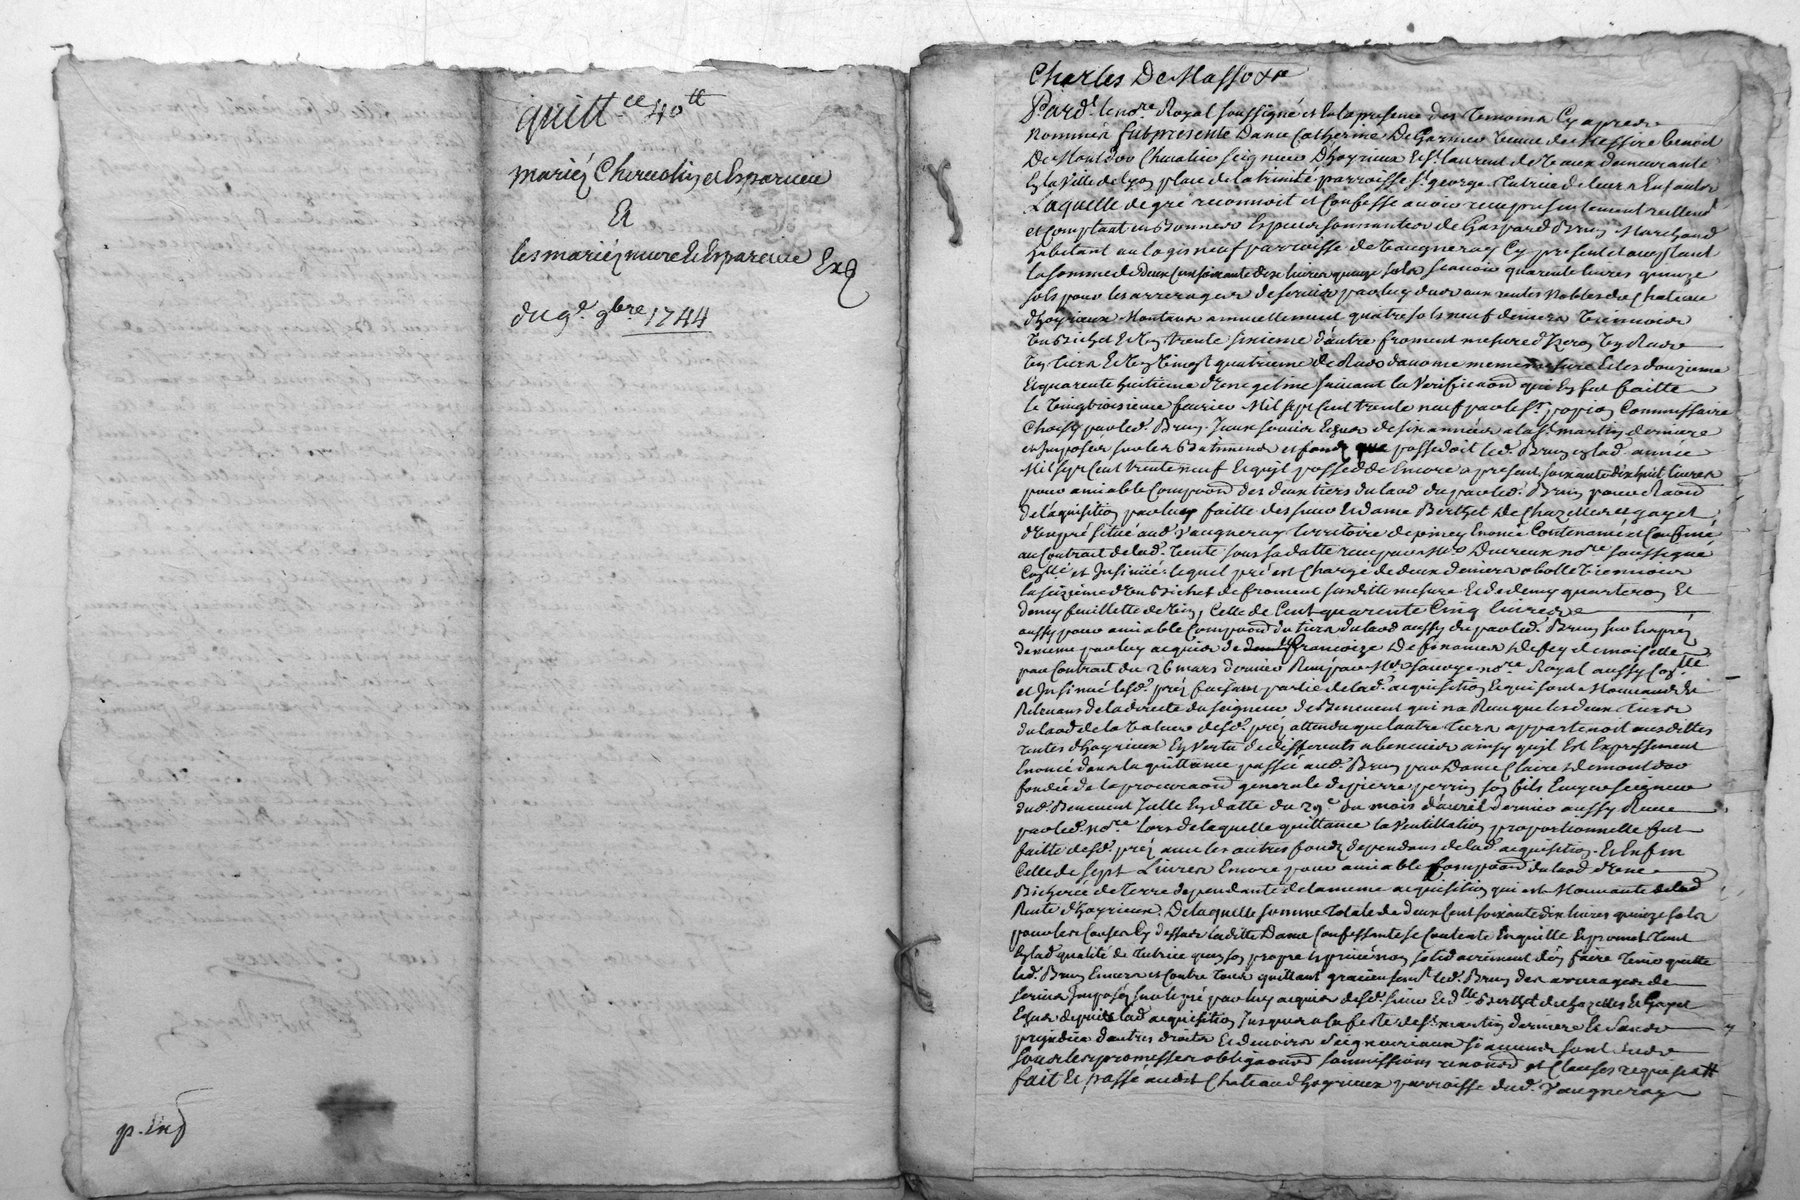 quitt.ce 40 tt
mariéz Chermolin et Esparcieu
Et
les mariéz mure et Esparcieu Exp
du 9e. 9bre 1744
p. Exp
Charles De Masso &re
Pard.t le no.re Royal soussigné et En la presence des temoins Cy apres
nommés fut presente Dame Catherine De Garnier veuve de Messire benoit
De Montdor Chevalier seigneur D'hoyrieux et St. laurent de Vaux demeurante
En la Ville de Lyon place de la trinité parroisse St. george. tutrice de leurs Enfants
Laquelle de gré reconnoit et Confesse avoir reçu presentement reellem.t
et Comptant en Bonnes Especes sonnantes de Gaspard Brun Marchand
habitant au logis neuf parroisse de Vaugneray Cy present et acceptant
la somme de Deux Cent soixante dix livres quinze sols scavoir quarente livres quinze
sols pour les arrerages de servis par luy dus aux rentes Nobles du Chateau
d'hoyrieux Montans annuellement quatre sols neuf deniers Viennois
un Bichet et Un trente sixieme d'autre froment mesure d'Yzeron Un Ras
Un tiers et Un Vingt quatrieme de Ras d'avoine meme mesure et les douzieme
Et quarente huitieme d'une geline suivant la Verification qui En fut faitte
le Vingt troisieme fevrier Mil sept Cent trente neuf par le Sr. Commissaire
Choisy par led. Brun. Iceux servis Echus de six années a la St. martin derniere
et Imposés sur les Batiments et fonds que possedoit led. Brun En lad. année
Mil sept Cent trente neuf Et qu'il possede Encore a present, soixante dix huit livres
pour amiable Compoon des deux tiers du laod du par led. Brun pour Raison
de l'aquisition par luy faitte des sieur Et dame Berthet De Chazelles et gayet
d'un pré situé aud. Vaugneray territoire de Enoncé Contenancé et Confiné
au Contrat de lad. Vente sous sa datte reçu par Me Ducreux no.re soussigné
Coll.é et Insinué. lequel pré est Chargé de deux deniers obolle Viennois
la seizieme d'un Bichet de froment susditte mesure Et de demy quarteron Et
demy feuillette de Vin, Celle de Cent quarente Cinq livres
aussy pour amiable Compoon du tiers du laod aussy du par led. Brun sur Un pré
de meme par luy acquis de françoise De demoiselle
par Contrat du 26 mars dernier Reçu par Me Sauvage no.re Royal aussy Coll.é
et Insinué lesd. préz faisant partie de lad. acquisition Et qui sont Mouvants Et
Relevans de la directe du seigneur de Benevent qui n'a Reçu que les deux tiers
du laod de la Valeur desd. préz attendu que l'autre tiers appartenoit auxdittes
rentes d'hoyrieux En Vertu de differents abenevis ainsy qu'il Est Expressement
Enoncé dans la quittance passée aud. Brun par Dame Claire Demontdor
fondée de la procuraon generale de pierre perrin son fils Ecuyer seigneur
dud. Benevent Icelle En datte du 29e du mois d'avril dernier aussy Reçue
par led. no.re lors de laquelle quittance la Ventillation proportionnelle fut
faitte desd. préz avec les autres fonds dependans de lad. acquisition. Et Enfin
Celle de sept Livres Encore pour amiable Compoon du laod d'une
Bicherée de terre dependante de la meme acquisition qui est Mouvante de lad.
Rente d'hoyrieux. De laquelle somme totale de deux Cent soixante dix livres quinze sols
pour les Causes Cy dessus laditte Dame Confessante se Contente En quitte Et promet tant
En lad. qualité de tutrice qu'en son propre Et privé nom solidairement d'en faire tenir quitte
led. Brun Envers et Contre tous quittant gracieusem.t led. Brun des arrerages de
servis Imposés sur le pré par luy acquis desd. sieur Et d.lle Berthet de chazelles Et Gayet
Echus depuis lad. acquisition Jusques a la feste de St. martin derniere Et sans
prejudice d'autres droits Et devoirs seigneuriaux si aucuns sont dus
sous les promesses obligaons soumissions renonons et Clauses requises
fait Et passé audit Chateau d'hoyrieux parroisse dud. Vaugneray